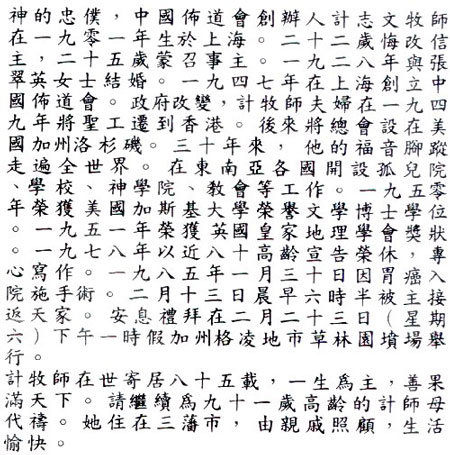 神的忠僕，中國佈道會創辦人計志文牧師
在一九零一年生於上海。二十二歲悔改信
主，二十五歲蒙召事主。一九二八年與張
翠英女士結婚。一九四七年在上海創立中
國佈道會。政府改變，計牧師夫婦在一九四
九年將聖工遷到香港。後來將總會設在美
國加州洛杉磯。三十年來，他的福音腳蹤
走遍全世界。在東南亞各國開設孤兒院
、學校、神學院、教會等工作。一九五零
年榮獲美國加斯基大學榮譽文學博士學位
。一九五一年榮獲英國皇家地理學會獎狀
。一九七八年以近八十高齡宣告榮休，專
心寫作。一九八五年一月三十日因胃癌入
院施手術。二月十三日晨早六時半被主接
返天家。安息禮拜在二月二十三日（星期
六）下午一時假加州格凌地市草林園墳場舉
行。
計牧師在世寄居八十五載，一生爲主，善果
滿天下。請繼續爲九十一歲高齡的計師母
代禱。她住在三藩市，由親戚照顧，生活
愉快。